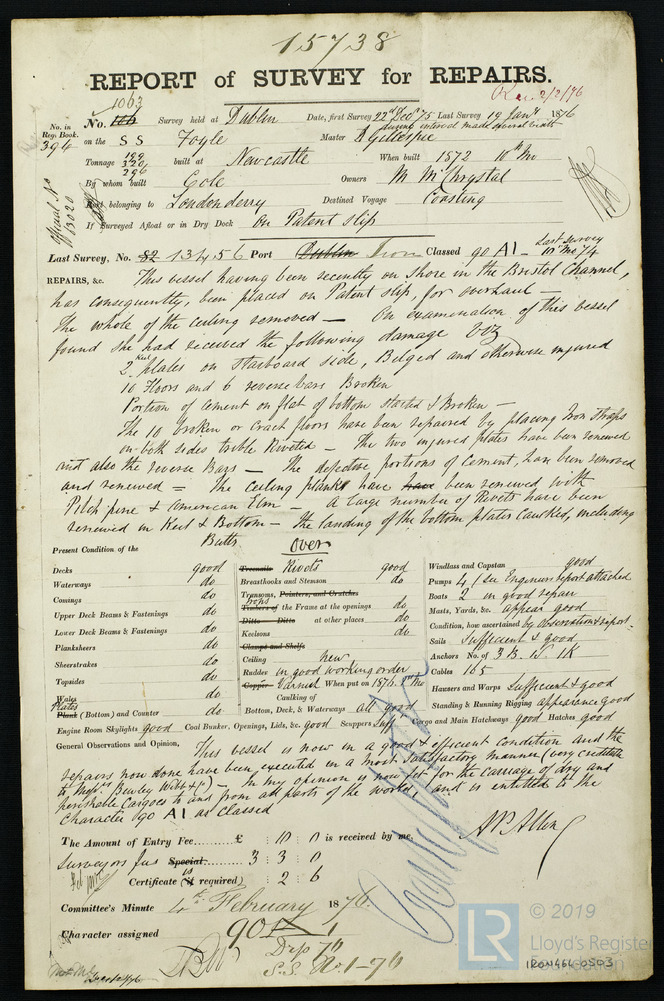 15738
REPORT of SURVEY for REPAIRS.
Rec. 2/2/76
1063
No. in Reg. Book. 394
No. Survey held at Dublin Date, first Survey 22nd Decr 75 Last Survey 19 Jany 1876
during interval made several visits
on the SS Foyle Master R Gillespie
Tonnage 199 320 296 built at Newcastle When built 1872 10th Mo
By whom built Cole Owners M McChrystal
Port belonging to Londonderry Destined Voyage Coasting
Official No 63020
If Surveyed Afloat or in Dry Dock On Patent Slip
Last Survey, No. 82 13456 Port Dublin Iron Classed 90 A1 - Last Survey 10 Mo 74
REPAIRS, &c. This vessel having been recently on Shore in the Bristol Channel,
has consequently, been placed on Patent slip, for overhaul —
The whole of the ceiling removed — On examination of this vessel
found she had received the following damage Viz
2 Keel plates on Starboard side, Bilged and otherwise injured
10 Floors and 6 reverse bars Broken
Portion of Cement on flat of bottom started & Broken —
The 10 broken or Crack floors have been repaired by placing Iron Straps
on both sides treble Riveted — The two injured plates have been renewed
and also the reverse Bars — The defective portions of Cement, have been removed
and renewed = The ceiling planks have have been renewed with
Pitch pine & American Elm — A large number of Rivets have been
renewed in Keel & Bottom — The landing of the bottom plates Caulked, including
Butts
Over
Present Condition of the
Decks good
Waterways do
Comings do
Upper Deck Beams & Fastenings do
Lower Deck Beams & Fastenings do
Planksheers do
Sheerstrakes do
Topsides do
Wales do
Plates Plank (Bottom) and Counter do
Treenails Rivets good
Breasthooks and Stemson do
Transoms, Pointers, and Crutches
Timbers of the Frame at the openings do
Ditto Ditto at other places do
Keelsons do
Clamps and Shelfs
Ceiling New
Rudder in good working order
Copper Varnish When put on 1876. 1st Mo
Caulking of
Bottom, Deck, & Waterways all good
Windlass and Capstan good
Pumps 4 / See Engineers report attached
Boats 2 in good repair
Masts, Yards, &c. appear good
Condition, how ascertained by observation & report.
Sails Sufficient & good
Anchors No. of 3 B. 1S. 1K
Cables 165
Hausers and Warps sufficient & good
Standing & Running Rigging appearance good
Engine Room Skylights good Coal Bunker, Openings, Lids, &c. good Scuppers Suff Cargo and Main Hatchways good Hatches good
General Observations and Opinion, This vessel is now in a good & efficient condition and the
repairs now done have been executed in a most satisfactory manner (very creditable
to Messrs Bewley Webb & Co) — In my opinion is now fit for the carriage of dry and
perishable Cargoes to and from all parts of the world, and is entitled to the
Character 90 A1 as Classed
The Amount of Entry Fee £ 10 : 0 is received by me,
Surveyors fees Special 3 : 3 : 0
Certificate (if is required) : 2 : 6
A P Allen
Committee's Minute 4th February 1876.
Character assigned 90 A 1
Drp 76
S.S. No 1-76
LR
© 2019
Lloyd's Register
Foundation
IRON461-0503